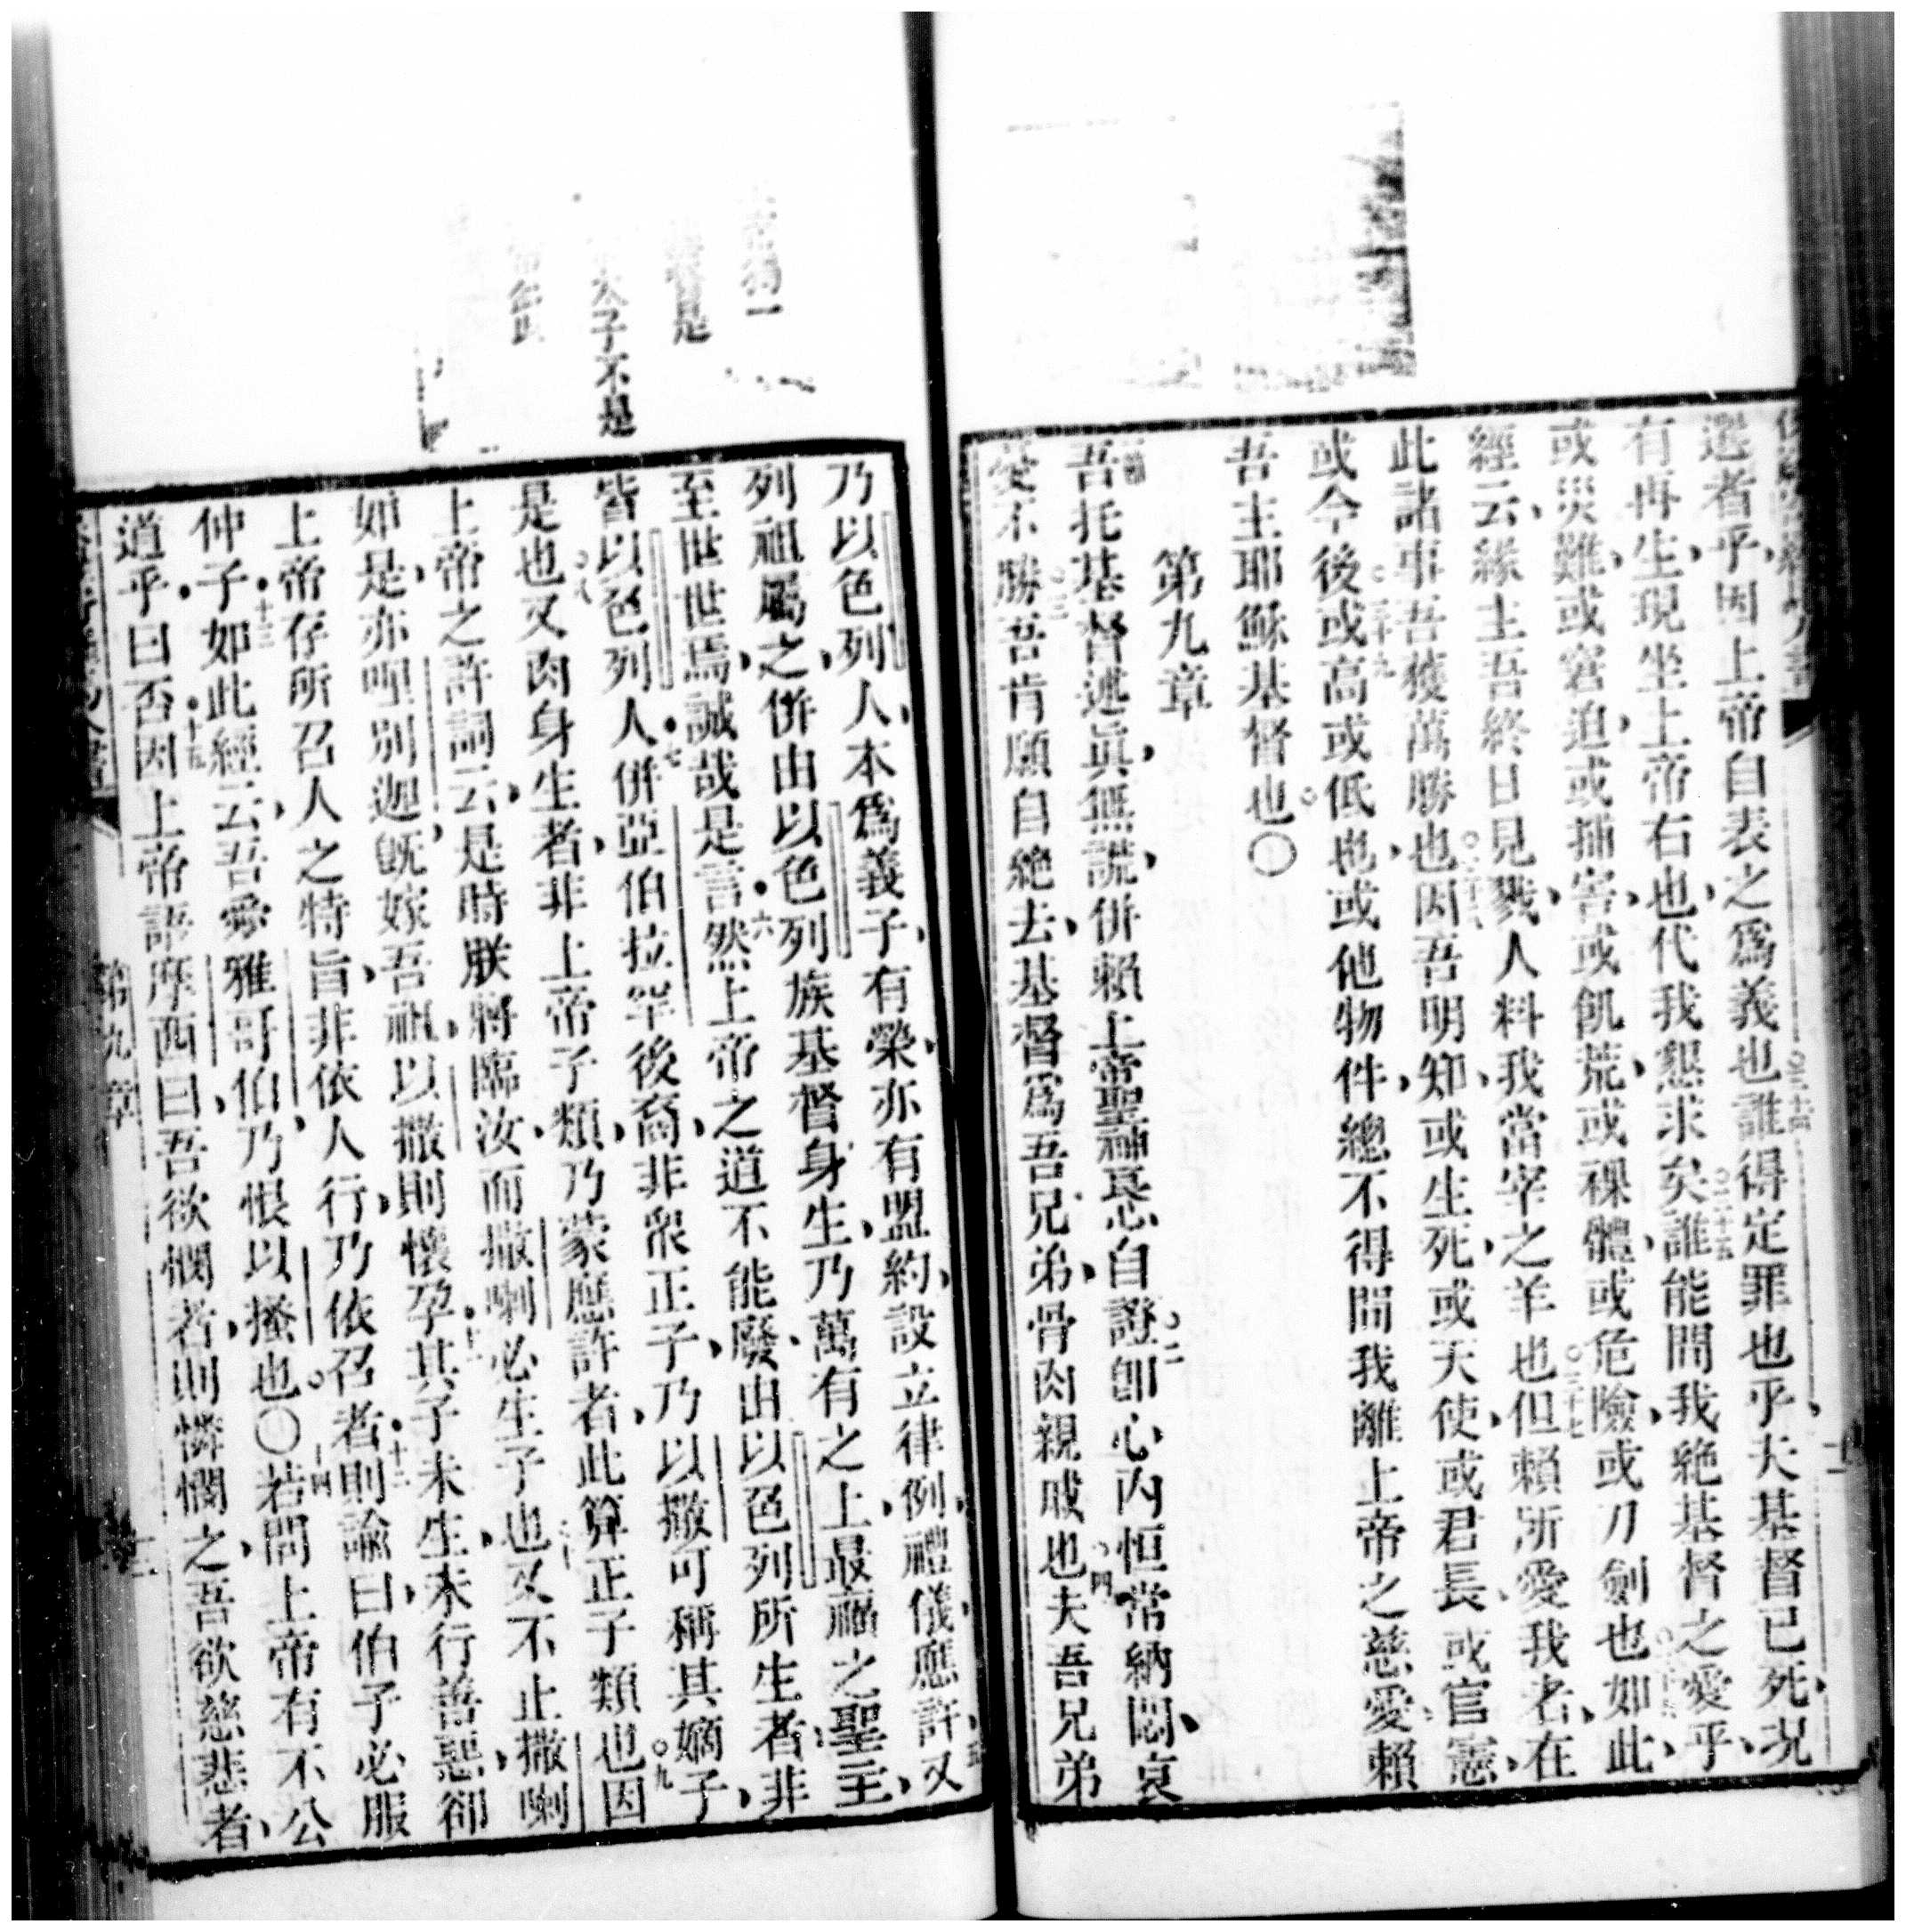 選者乎因上帝自表之爲義也誰得定罪也乎夫基督已死況
有再生現坐上帝右也代我懇求矣誰能間我絶基督之愛乎
或災難或窘迫或捕害或飢荒或裸體或危險或刀劍也如此
經云緣主吾終日見戮人料我當宰之羊也但賴所愛我者在
此諸事吾獲萬勝也因吾明知或生死或天使或君長或官憲
或今後或高或低也或他物件總不得間我離上帝之慈愛賴
吾主耶穌基督也〇
第九章
吾托基督述眞無謊併賴上帝聖神良心自證卽心內恒常納悶哀
憂不勝吾肯願自絶去基督爲吾兄弟骨肉親戚也夫吾兄弟
乃以色列人本爲義子有榮亦有盟約設立律例禮儀應許又
列祖屬之併由以色列族基督身生乃萬有之上最福之聖主
至世世焉誠哉是言然上帝之道不能廢由以色列所生者非
皆以色列人併亞伯拉罕後裔非衆正子乃以撒可稱其嫡子
是也又肉身生者非上帝子類乃蒙應許者此算正子類也因
上帝之許詞云是時朕將臨汝而撒喇必生子也又不止撒喇
如是亦哩別迦旣嫁吾祖以撒則懷孕其子未生未行善惡卻
上帝存所召人之特旨非依人行乃依召者則諭曰伯子必服
仲子如此經云吾愛雅哥伯乃恨以搔也〇若問上帝有不公
道乎曰否因上帝語摩西曰吾欲憫者則憐憫之吾欲慈悲者
第九章